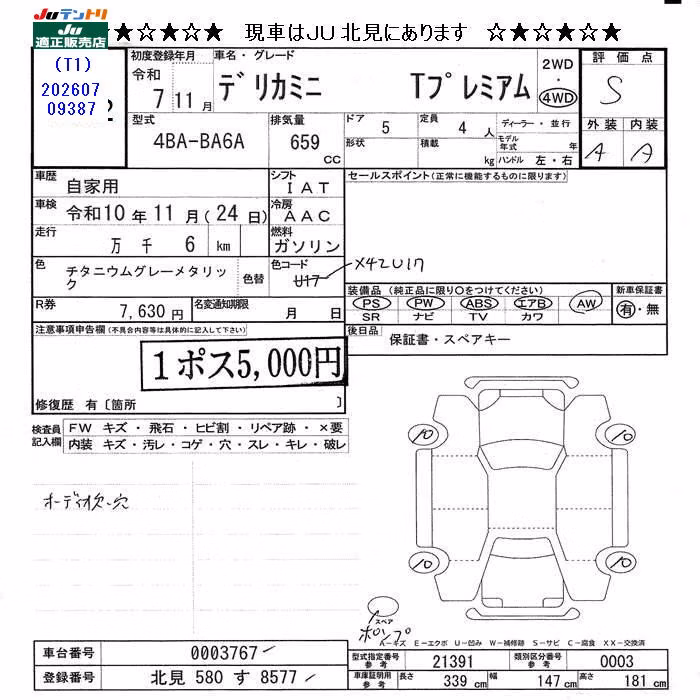 Juテントリ
JU
適正販売店
★☆★☆★☆★ 現車はJU北見にあります ☆★☆★☆★
(T1)
202607
09387
初度登録年月
令和
7 11 月
車名・グレード
デリカミニ Tプレミアム
2WD
・
4WD
評価点
S
外装 内装
A A
型式
4BA-BA6A
排気量
659
CC
ドア
5
定員
4 人
形状
積載
kg
ディーラー・並行
モデル
年式 年
ハンドル 左・右
車歴
自家用
シフト
IAT
セールスポイント(正常に機能するものに限ります)
車検
令和10 年 11 月(24 日)
冷房
AAC
走行
万 千 6 km
燃料
ガソリン
色
チタニウムグレーメタリック
色替
色コード
U17
X42U17
装備品 (純正品に限り○をつけてください)
PS PW ABS エアB AW
SR ナビ TV カワ
新車保証書
有・無
R券
7,630 円
名変通知期限
月 日
後日品
保証書・スペアキー
注意事項申告欄(不具合内容等は具体的に記入して下さい)
1ポス5,000円
修復歴 有〔箇所 〕
検査員
記入欄
FW キズ ・ 飛石 ・ ヒビ割 ・ リペア跡 ・ ×要
内装 キズ ・ 汚レ ・ コゲ ・ 穴 ・ スレ ・ キレ ・ 破レ
10 10
10 10
スペア
ポンプ
A－キズ E－エクボ U－凹み W－補修跡 S－サビ C－腐食 XX－交換済
車台番号
0003767
登録番号
北見 580 す 8577
型式指定番号
参考
21391
類別区分番号
参考
0003
車庫証明用
参考
長さ
339 cm
幅
147 cm
高さ
181 cm